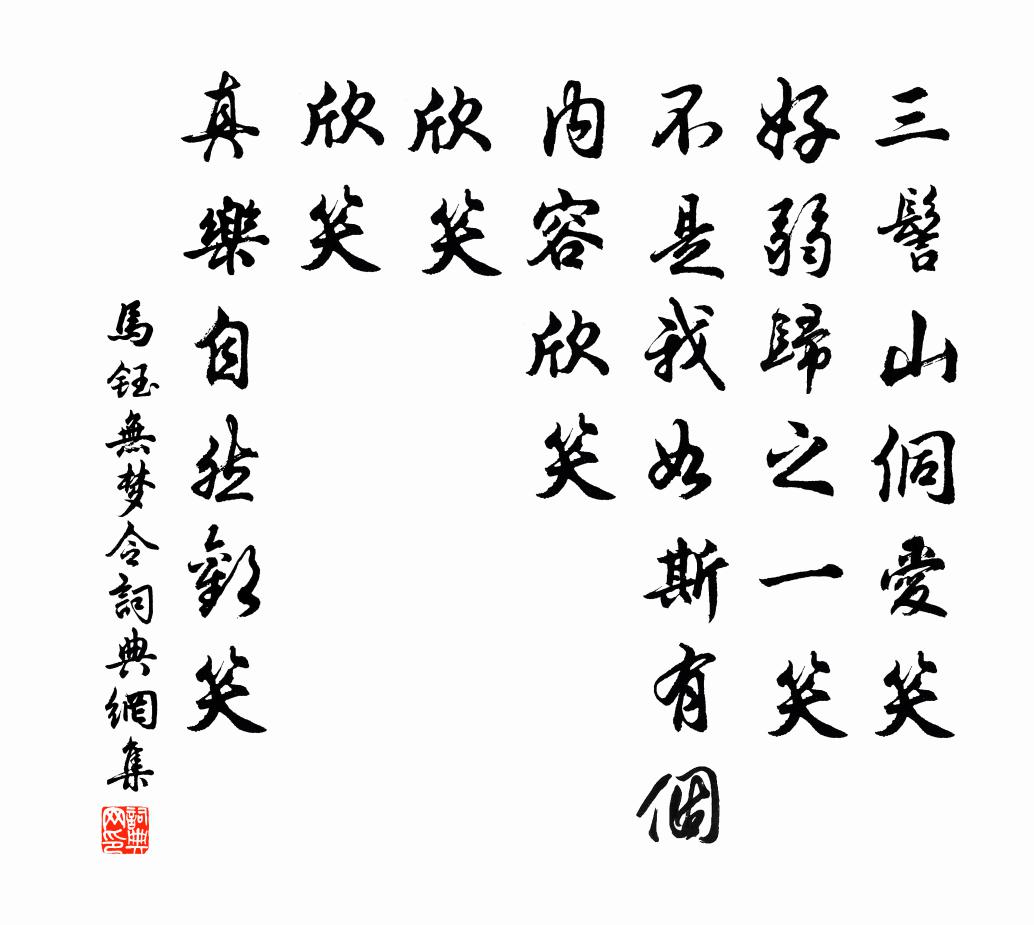 三髻山侗愛笑
好弱歸之一笑
不是我如斯有個
內容欣笑
欣笑
欣笑
真樂自然歡笑
馬鈺無梦令詞典網集
詞典网印